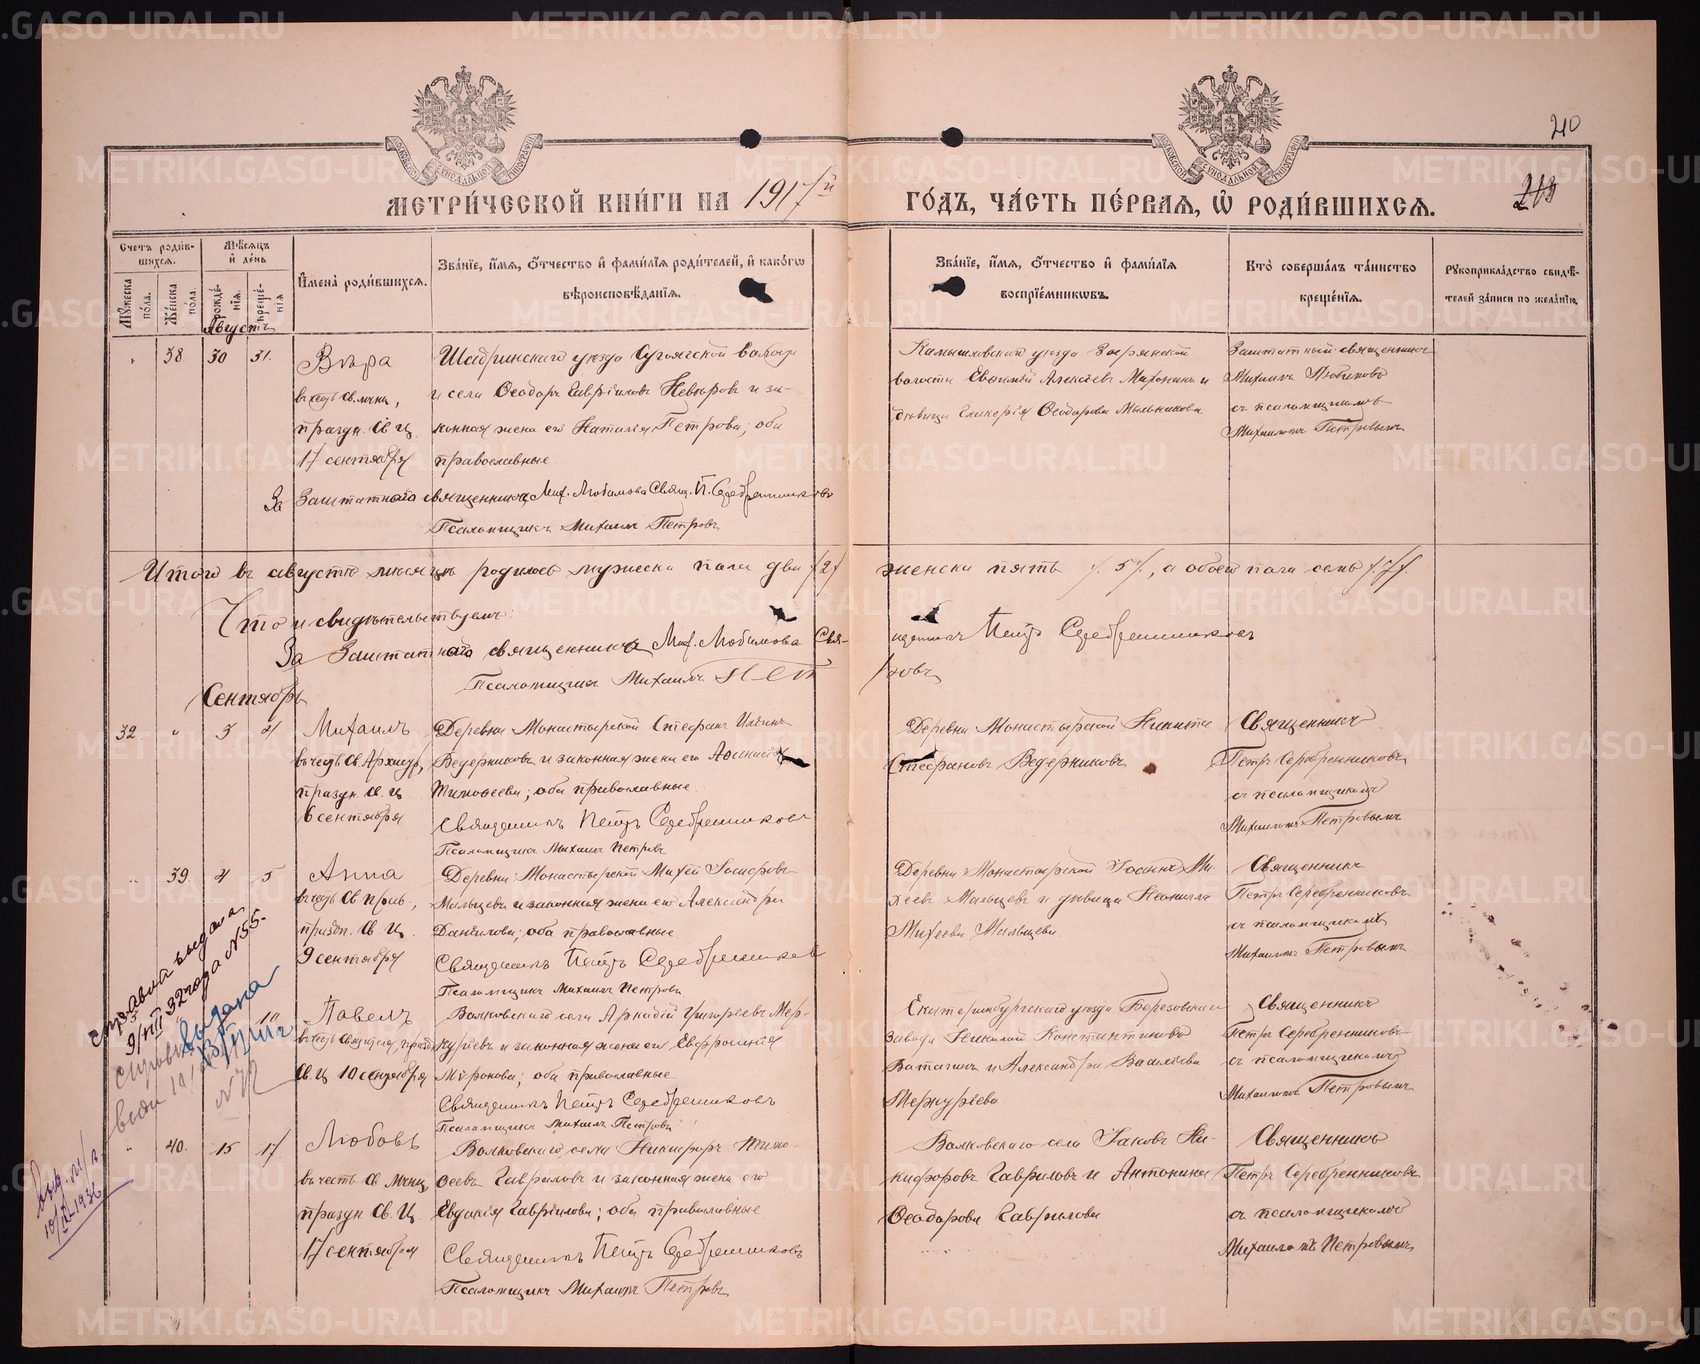 210
МЕТРИ́ЧЕСКОЙ КНИ́ГИ НА 1917й ГО́ДЪ, ЧА́СТЬ ПЕ́РВАЯ, Ѡ РОДИ́ВШИХСЯ.
Счетъ роди́вшихся.
Мѣ́сяцъ и́ де́нь
И҆мена̀ роди́вшихся.
Зва́нїе, и҆́мя, ѻ҆́тчество и҆ фами́лїя роди́телей, и҆ како́гѡ
вѣроисповѣ́данїя.
Зва́нїе, и҆́мя, ѻ҆́тчество и҆ фами́лїя
воспрїе́мникѡвъ.
Кто̀ соверша́лъ та́инство
креще́нїя.
Рукоприкла́дство свидѣ́-
телей за́писи по жела́нїю.
Му́жеска по́ла.
Же́нска пола.
рожде́нїя.
креще́нїя
Августъ
38 30 31.
Вѣра
въ честь Св. мчны,
праздн. Св. Ц.
17 сентября
Шадринскаго уѣзда Сугоякской волости
и села Ѳеодоръ Гавріиловъ Невѣровъ и за-
конная жена его Наталія Петрова; оба
православные
Камышловскаго уѣзда Зырянской
волости Евѳимій Алексѣевъ и
дѣвица Гликерія Ѳеодорова Мыльникова
Заштатный священникъ
Михаилъ Любимовъ
съ псаломщикомъ
Михаиломъ Петровымъ
За Заштатнаго священника Мих. Любимова Свящ. П. Серебренниковъ
Псаломщикъ Михаилъ Петровъ
Итого въ августѣ мѣсяцѣ родилось мужеска пола два /2/ женска пять /.5/., а обоего пола семь /.7/.
Что и свидѣтельствуемъ:
За Заштатнаго священника Мих. Любимова Свя-щенникъ Петръ Серебренниковъ
Псаломщикъ Михаилъ Петровъ
Сентябрь
32 " 3 4
Михаилъ
въ честь Св. Архистр,
праздн. Св. Ц.
6 сентября
Деревни Монастырской Стефанъ Ильинъ
Ведерниковъ и законная жена его
Тимоѳеева; оба православные
Священникъ Петръ Серебренниковъ
Псаломщикъ Михаилъ Петровъ
Деревни Монастырской Никита
Стефановъ Ведерниковъ
Священникъ
Петръ Серебренниковъ
съ псаломщикомъ
Михаиломъ Петровымъ
" 39. 4 5
Анна
въ честь Св. прав.,
праздн. Св. Ц.
9 сентября
Деревни Монастырской Михей Іосифовъ
Мальцевъ и законная жена его Александра
Даніилова; оба православные
Священникъ Петръ Серебренниковъ
Псаломщикъ Михаилъ Петровъ
Деревни Монастырской Іоаннъ Ми-
хеевъ Мальцевъ и дѣвица Неонилла
Михеева Мальцева
Священникъ
Петръ Серебренниковъ
съ псаломщикомъ
Михаиломъ Петровымъ
10
Павелъ
Св. Ц. 10 сентября
Волковскаго села Аркадій Григорьевъ Мер-
курьевъ и законная жена его Евфросинія
Миронова; оба православные
Священникъ Петръ Серебренниковъ
Псаломщикъ Михаилъ Петровъ
Екатеринбургскаго уѣзда Березовскаго
завода Николай Константиновъ
и Александра Васильева
Меркурьева
Священникъ
Петръ Серебренниковъ
съ псаломщикомъ
Михаиломъ Петровымъ
" 40. 15 17.
Любовь
въ честь Св. Мчниц,
праздн. Св. Ц.
17 сентября
Волковскаго села Никифоръ Тимо-
ѳеевъ Гавриловъ и законная жена его
Евдокія Гавріилова; оба православные
Священникъ Петръ Серебренниковъ
Псаломщикъ Михаилъ Петровъ
Волковскаго села Іаковъ Ни-
кифоровъ Гавриловъ и Антонина
Ѳеодорова Гаврилова
Священникъ
Петръ Серебренниковъ
съ псаломщикомъ
Михаиломъ Петровымъ
справка выдана
9/VIII 32 года №55.
выдана
10/IX-1936
METRIKI.GASO-URAL.RU